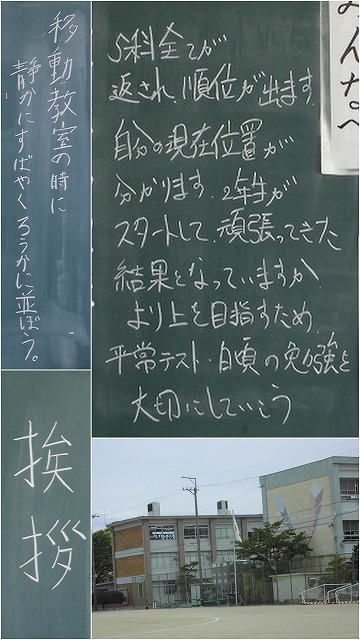 移動教室の時に
静かにすばやくろうかに並ぼう。
5科全てが
返され、順位が出ます。
自分の現在位置が
分かります。2年生が
スタートして、頑張ってきた
結果となっていますか
より上を目指すため、
平常テスト・日頃の勉強を
大切にしていこう
みんなへ
挨拶